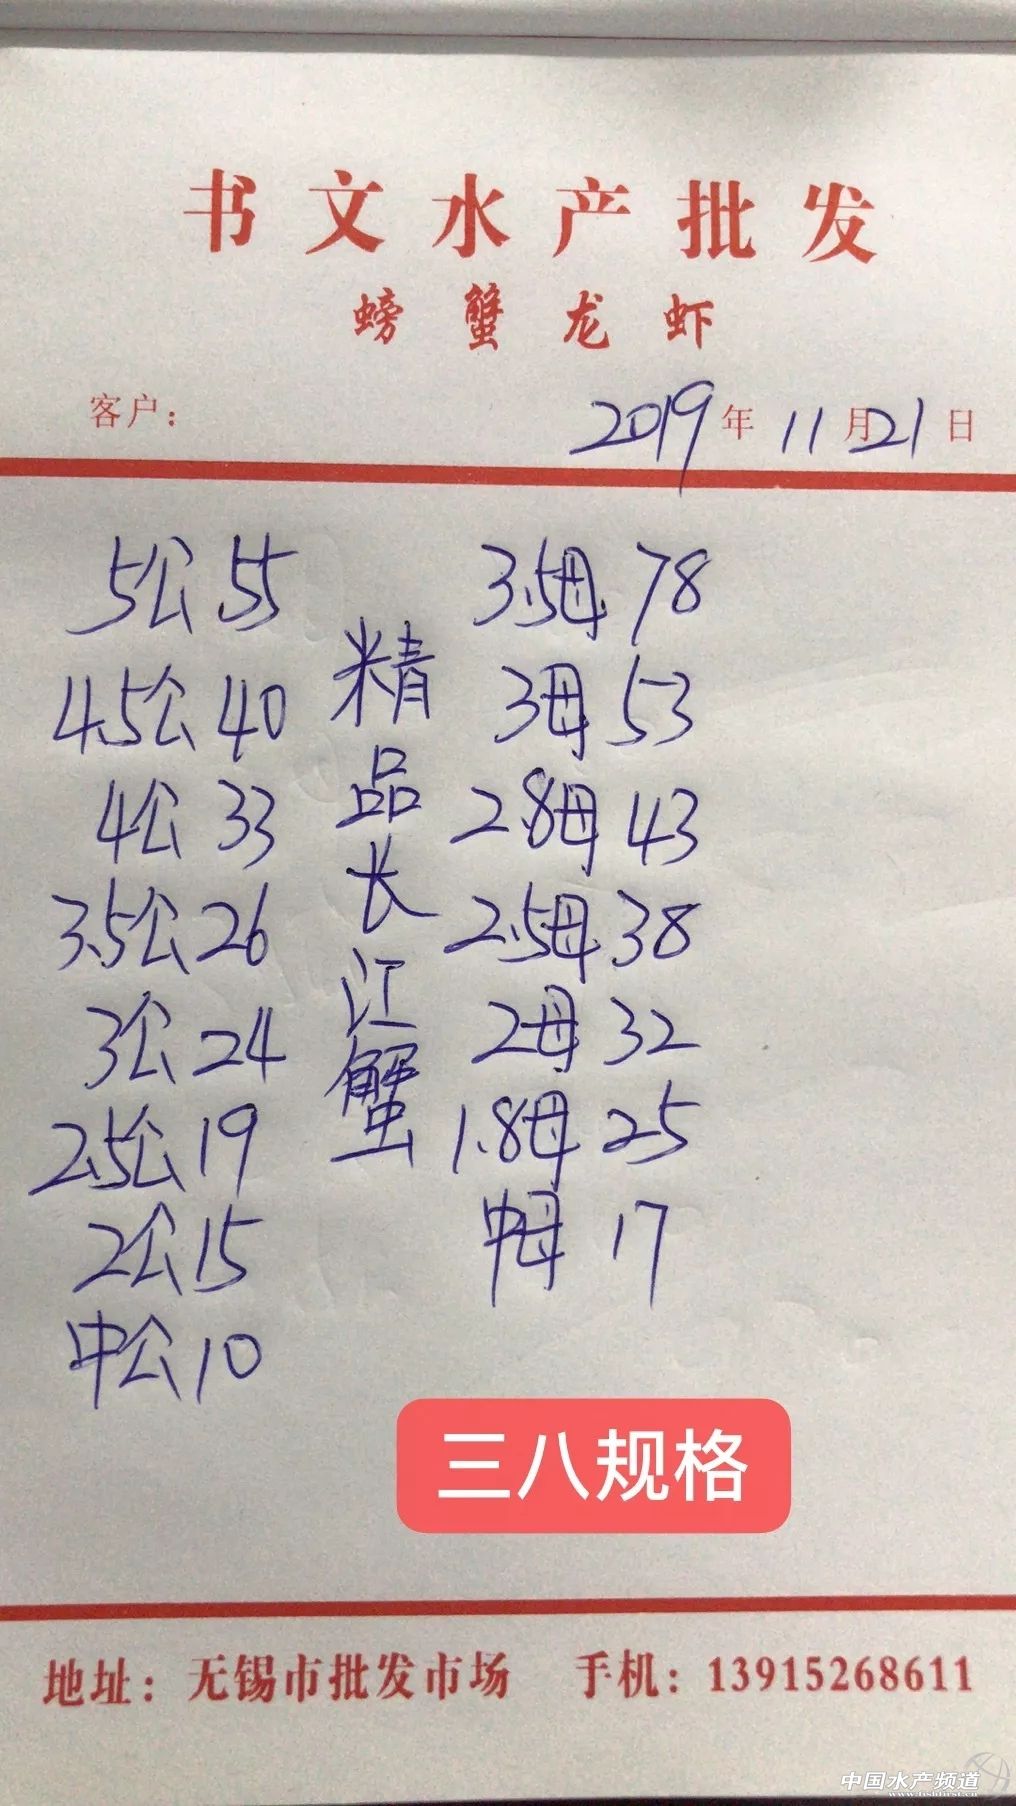 书文水产批发
螃蟹龙虾
客户：
2019年11月21日
5公 55
4.5公 40
4公 33
3.5公 26
3公 24
2.5公 19
2公 15
中公 10
精品长江蟹
3.5母 78
3母 53
2.8母 43
2.5母 38
2母 32
1.8母 25
中母 17
三八规格
地址：无锡市批发市场 手机：13915268611
中国水产频道
www.fishfirst.cn